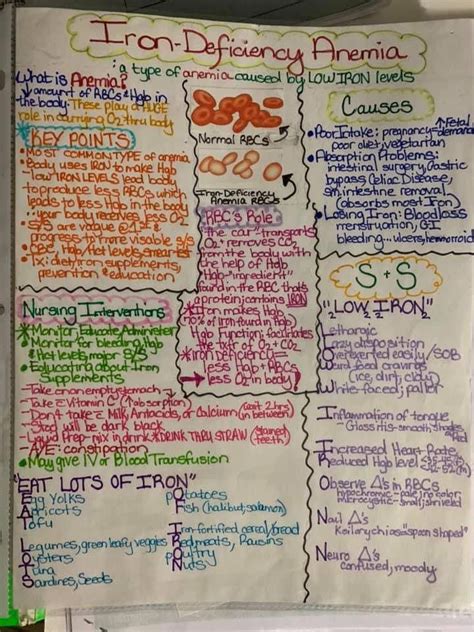 Iron-Deficiency Anemia
: a type of anemia caused by LOW IRON levels
What is Anemia?
↓ amount of RBCs & Hgb in
the body. These play a HUGE
role in carrying O2 thru body
KEY POINTS
• Most common type of anemia
• Body uses IRON to make Hgb
- low IRON levels lead body
to produce less RBCs which
leads to less Hgb in the body
... your body receives less O2
• S/S are vague @ 1st &
progress to more visable s/s
• Dx: Hgb/Hct levels smear test
• Tx: diet, iron supplements,
prevention & education
Normal RBCs
Iron-Deficiency
Anemia RBCs
RBC's Role:
the car, transports
O2 + removes CO2
from the body with
the help of Hgb
Hgb - "ingredient"
found in the RBC that's
a protein, contains IRON
* Iron makes Hgb
70% of iron found in Hgb
Hgb Function: facilitates
the tx of O2 + CO2
* iron deficiency =
less Hgb + RBCs
→ less O2 in body!
Causes
• Poor Intake: pregnancy - ↑ Fetal demands
poor diet, vegetarian
• Absorption Problems:
intestinal surgery, Gastric
bypass Celiac Disease,
Sm. intestine removal
(absorbs most Iron)
• Losing Iron: Blood loss
menstruation, GI
bleeding...ulcers, hemorrhoid
S + S
"LOW IRON"
Lethargic
Lazy disposition
Overexerted easily/SOB
Weird food cravings
(ice, dirt, clay)
White-faced; pallor
Inflammation of tongue
Glossitis - smooth,
Increased Heart Rate
Reduced Hgb level
Observe Δ's in RBCs
hypochromic - pale/no color
microcytic - small/shriveled
Nail Δ's
Koilonychias "spoon shaped"
Neuro Δ's
confused, moody
Nursing Interventions
* Monitor, Educate, Administer
* Monitor for bleeding, Hgb
& Hct levels, major S/S
• Educating about Iron
Supplements
- Take on an empty stomach
- Take c̄ Vitamin C (↑ absorption)
- Don't take c̄ Milk, Antacids, or Calcium (wait 2 hrs in between)
- Stool will be dark black
- Liquid Prep - mix in drink * DRINK THRU STRAW (stained teeth)
A/E: constipation
• May give IV or Blood Transfusion
"EAT LOTS OF IRON"
Egg Yolks
Apricots
Tofu
Legumes, green leafy veggies
Oysters
Tuna
Sardines, Seeds
pOtatoes
Fish (halibut, salamon)
Iron-fortified cereal/bread
Red meats, Raisins
pOultry
Nuts